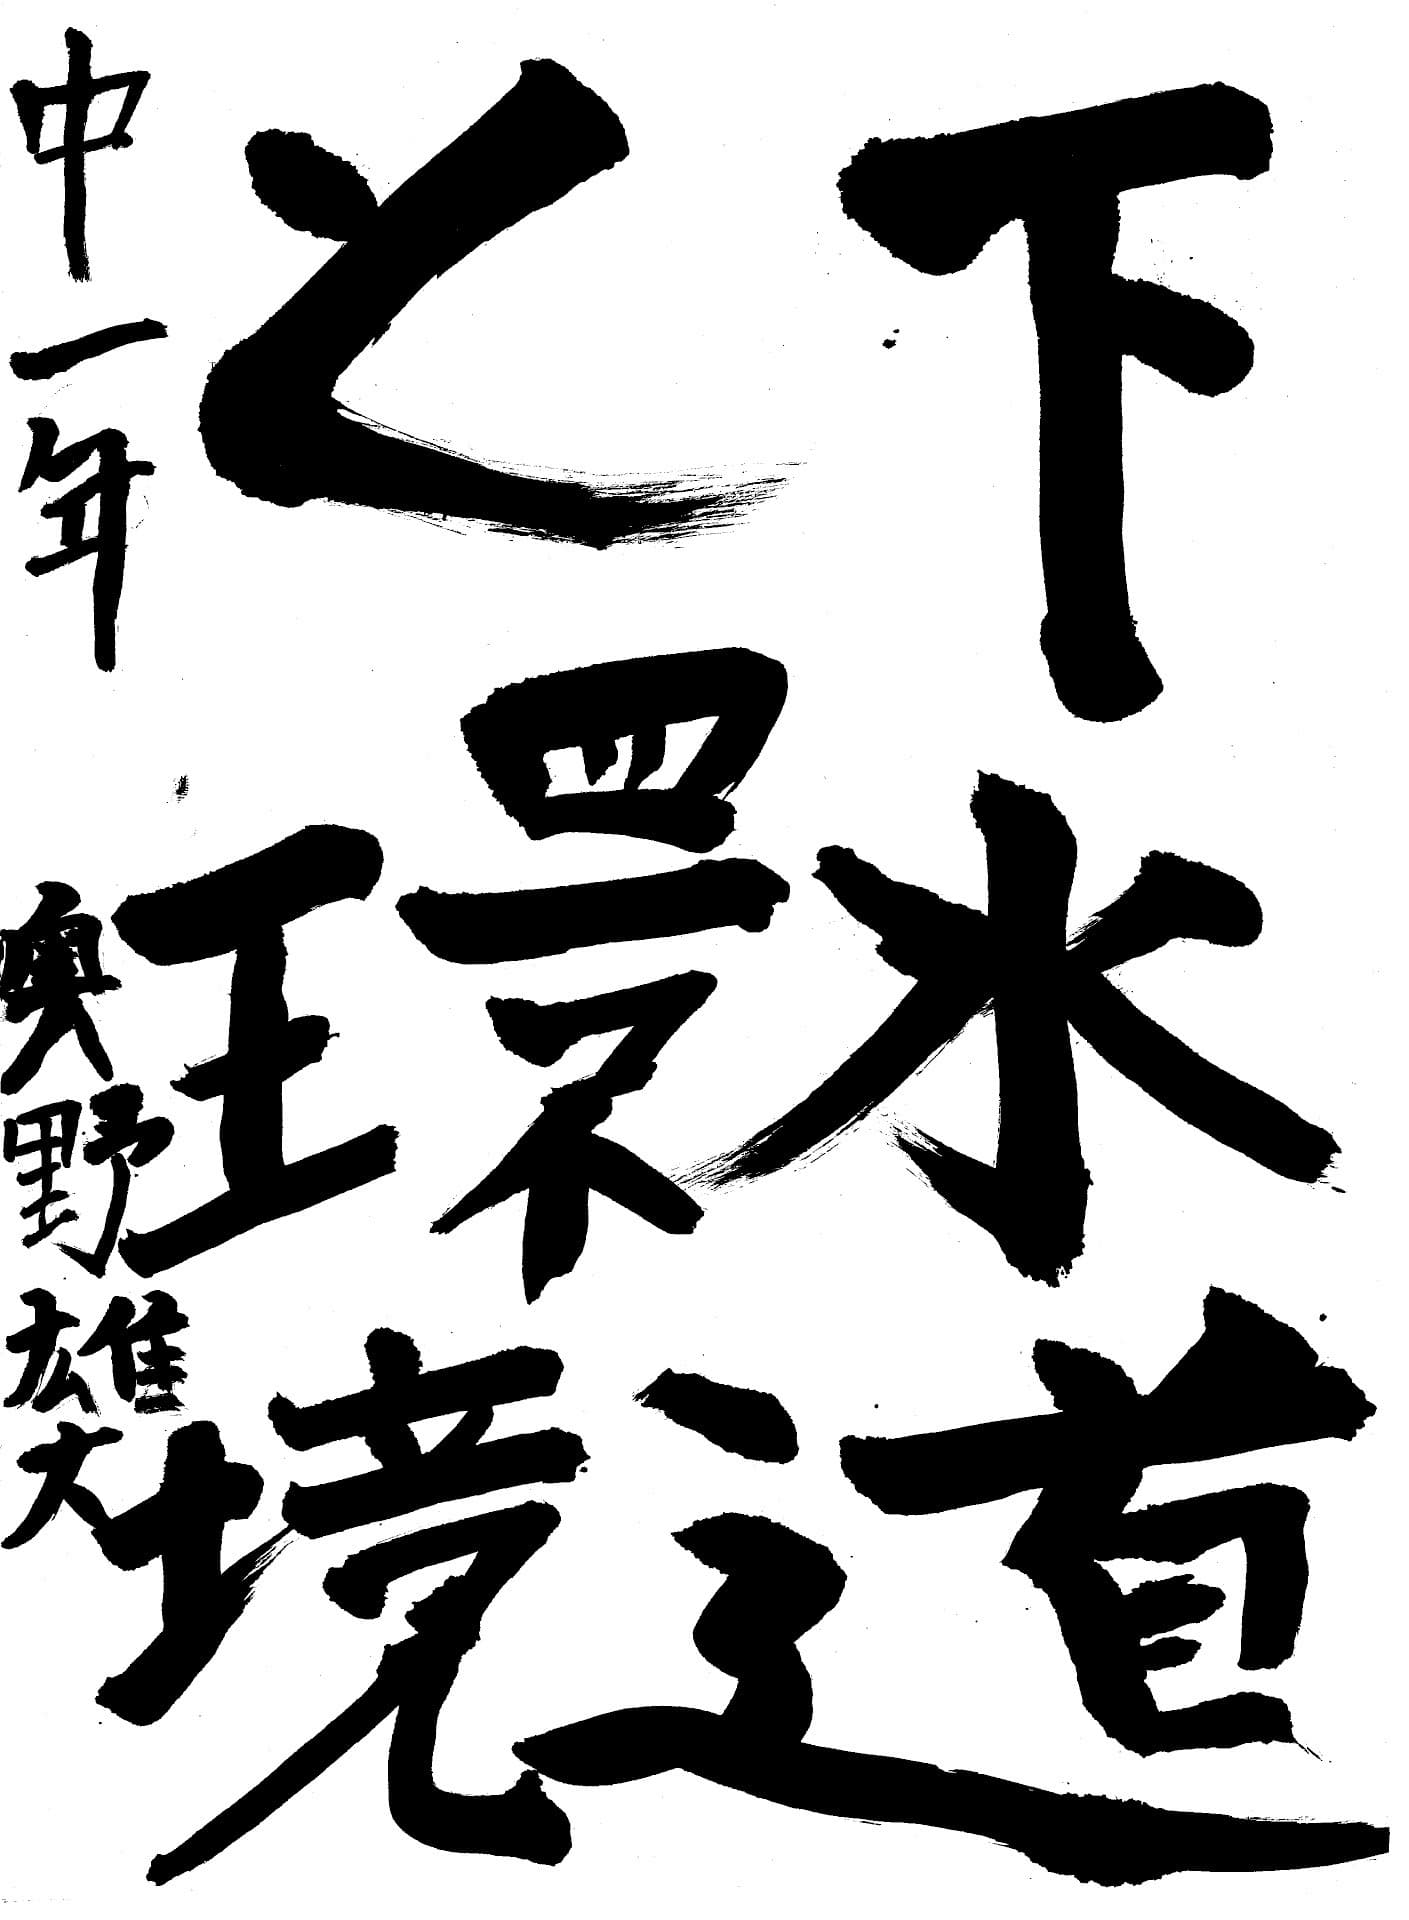 下水道
と環境
中一年 奥野雄大